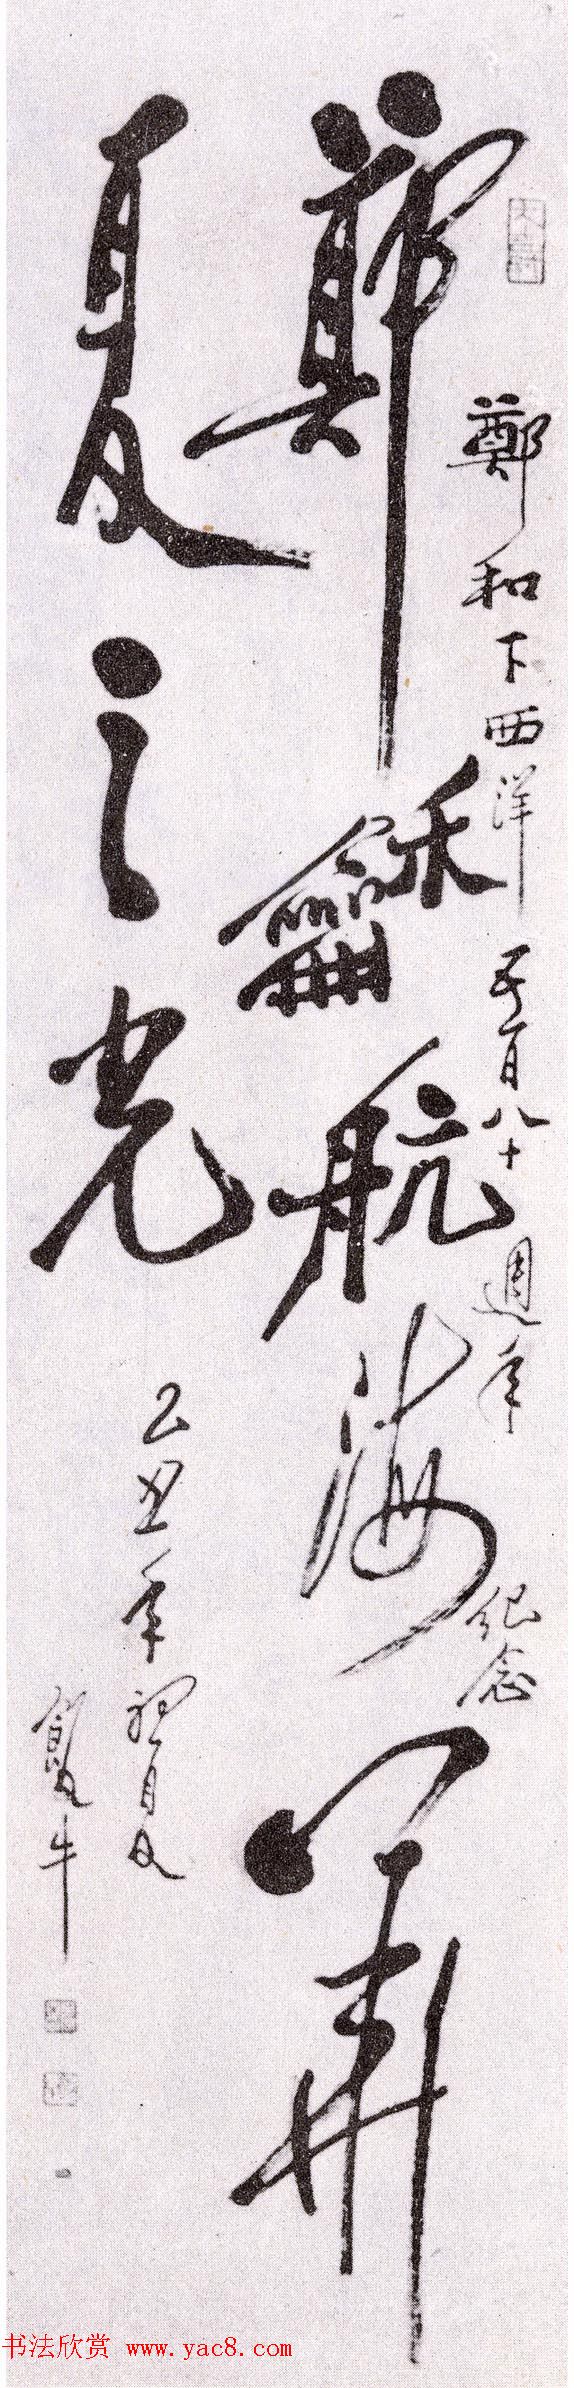 鄭和下西洋五百八十週年紀念
鄭龢航海華
夏之光
乙丑年
牛
书法欣赏 www.yac8.com